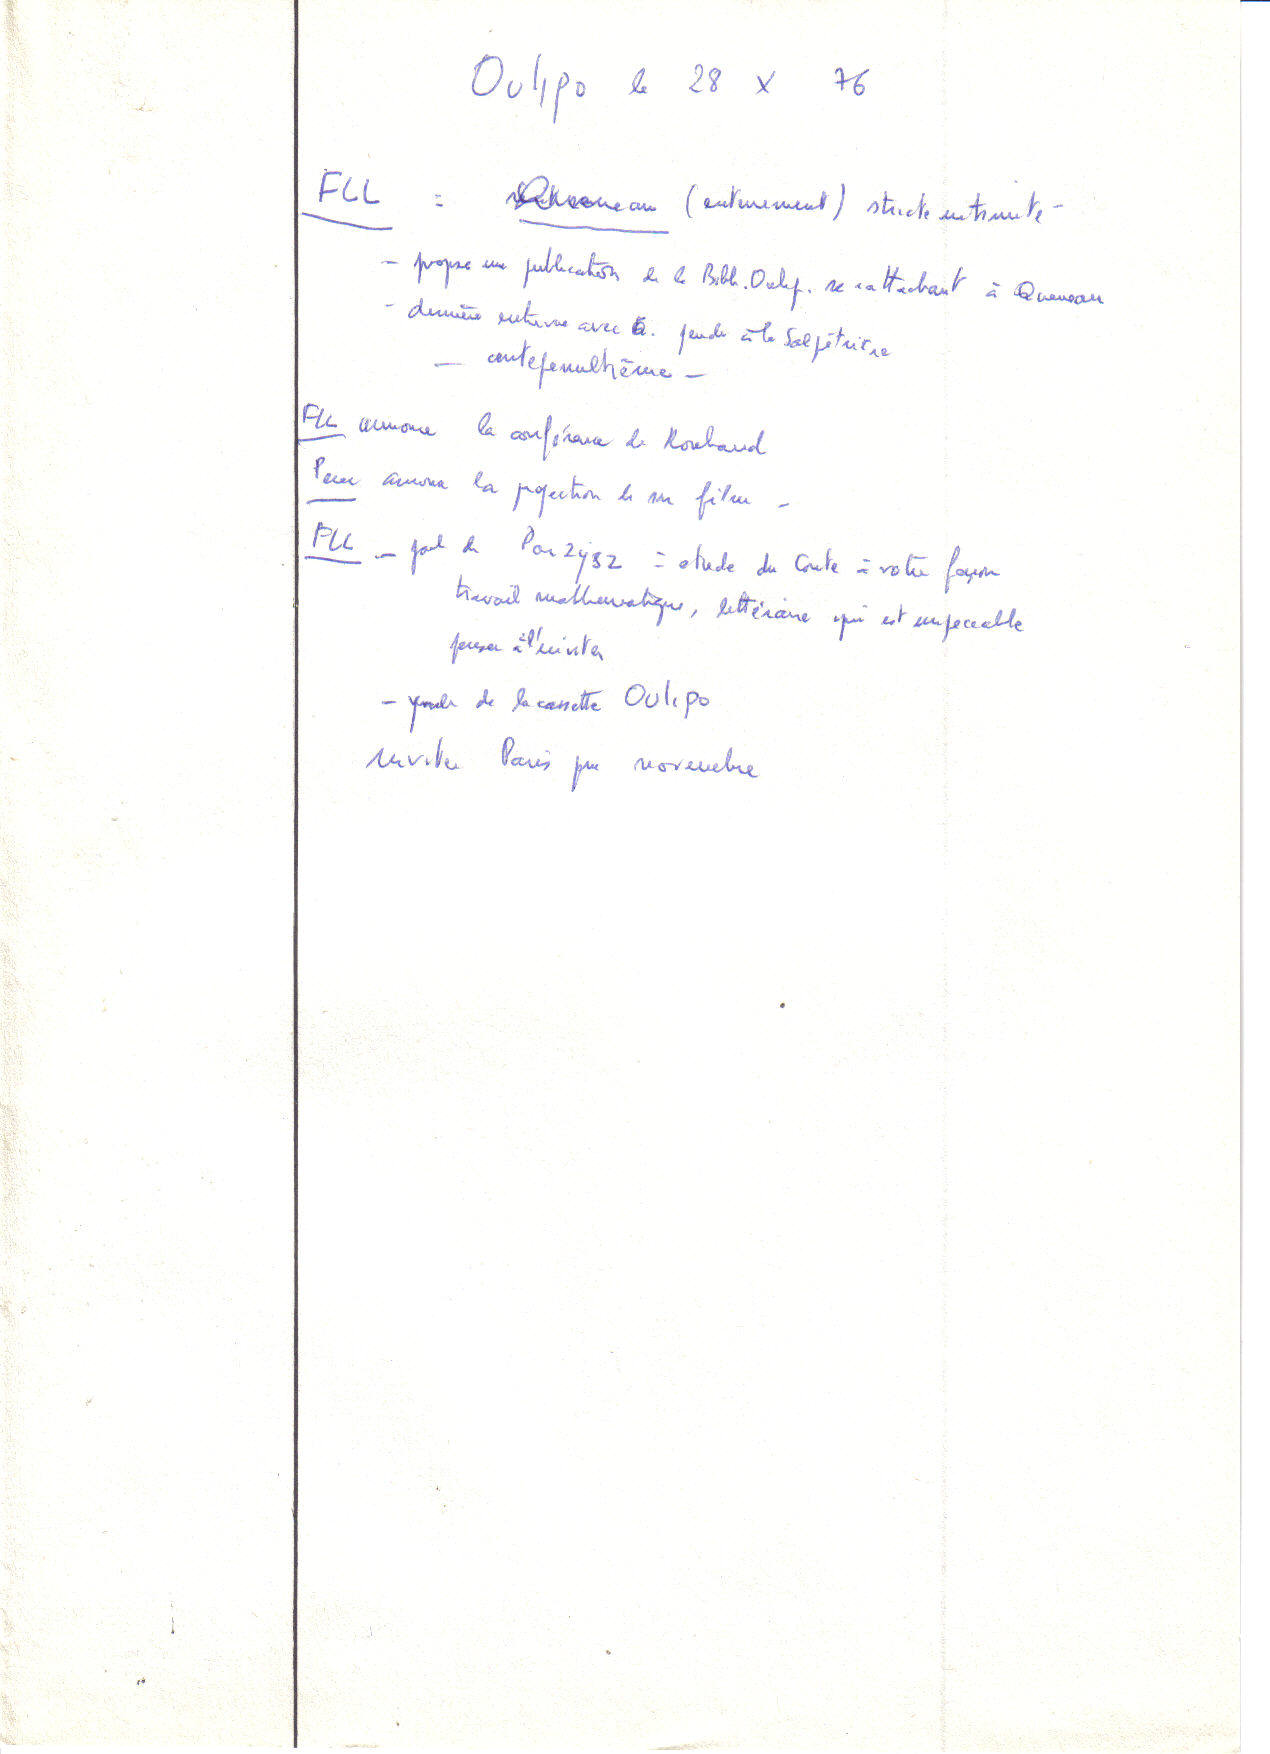 Oulipo le 28 X 76
FLL = Queneau (enterrement) stricte intimité -
- propose une publication de la Bibli. Oulip. se rattachant à Queneau
- dernière entrevue avec Q. jeudi à la Salpêtrière
- antepenultième -
FLL annonce la conférence de
Perec annonce la projection de son film -
FLL - parle de Parzysz = etude du Conte à votre façon
travail mathematique, littéraire qui est impeccable
penser à l'inviter
- parle de la cassette Oulipo
inviter Paris pour novembre